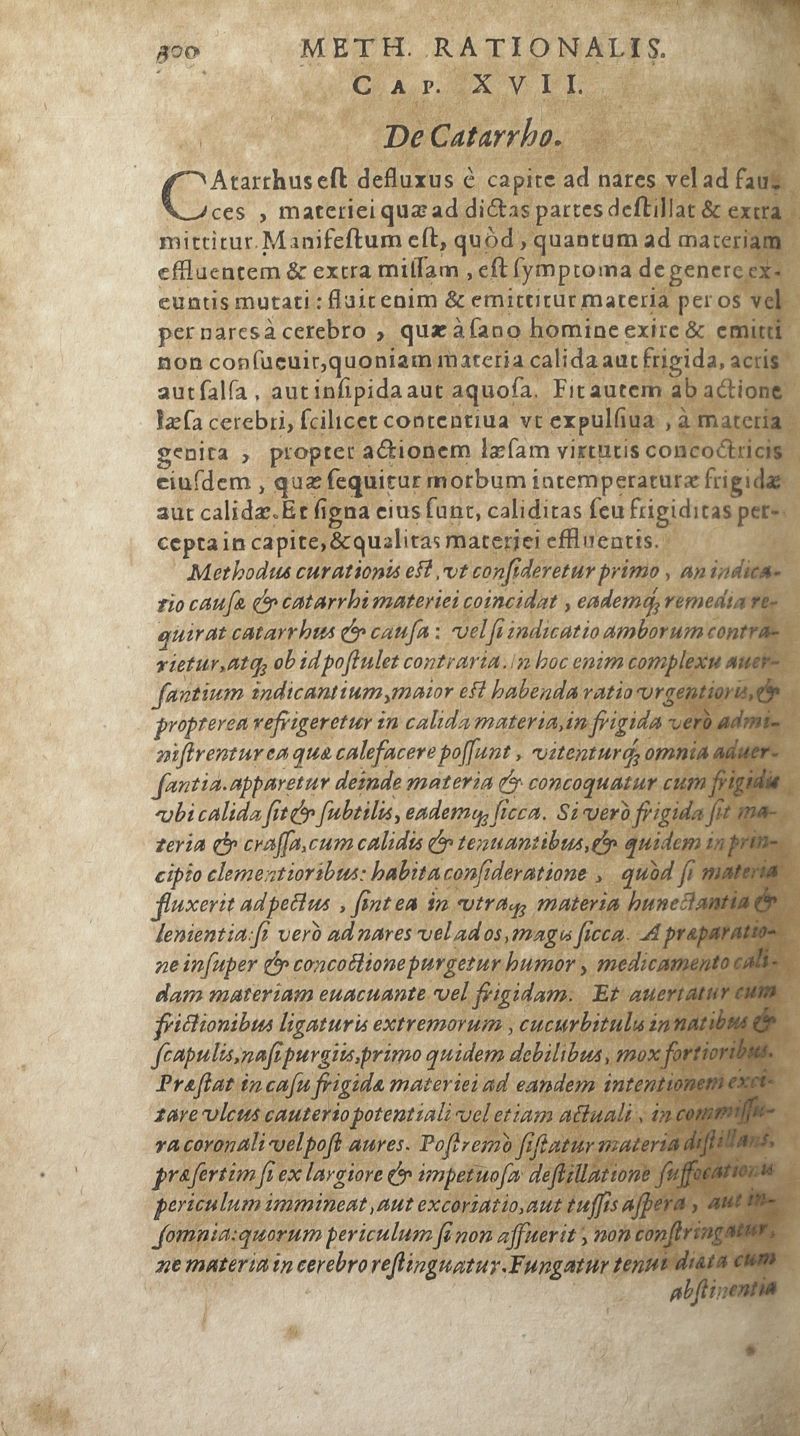 300 METH. RATIONALIS.
CAP. XVII.
De Catarrho.
CAtarrhus eſt defluxus è capite ad nares vel ad fau-
ces , materiei quæ ad dictas partes deſtillat & extra
mittitur. Manifeſtum eſt, quòd , quantum ad materiam
effluentem & extra miſſam , eſt ſymptoma de genere ex-
euntis mutati : fluit enim & emittitur materia per os vel
per nares à cerebro , quæ à ſano homine exire & emitti
non conſueuit,quoniam materia calida aut frigida, acris
aut ſalſa , aut inſipida aut aquoſa. Fit autem ab actione
læſa cerebri, ſcilicet contentiua vt expulſiua , à materia
genita , propter actionem læſam virtutis concoctricis
eiuſdem , quæ ſequitur morbum intemperaturæ frigidæ
aut calidæ. Et ſigna eius ſunt, caliditas ſeu frigiditas per-
cepta in capite,& qualitas materiei effluentis.
Methodus curationis eſt , vt conſideretur primo , an indica-
tio cauſæ & catarrhi materiei coincidat , eademq; remedia re-
quirat catarrhus & cauſa : vel ſi indicatio amborum contra-
rietur,atq; ob id poſtulet contraria. in hoc enim complexu auer-
ſantium indicantium,maior eſt habenda ratio vrgentioris,&
propterea refrigeretur in calida materia,in frigida verò admi-
niſtrentur ea quæ calefacere poſſunt , vitenturq; omnia aduer-
ſantia. apparetur deinde materia & concoquatur cum frigidis
vbi calida ſit & ſubtilis, eademq; ſicca. Si verò frigida ſit ma-
teria & craſſa,cum calidis & tenuantibus,& quidem in prin-
cipio clementioribus: habita conſideratione , quòd ſi materia
fluxerit ad pectus , ſint ea in vtraq; materia humectantia &
lenientia:ſi verò ad nares vel ad os, magis ſicca. A præparatio-
ne inſuper & concoctione purgetur humor , medicamento cali-
dam materiam euacuante vel frigidam. Et auertatur cum
frictionibus ligaturis extremorum , cucurbitulis in natibus &
ſcapulis,naſipurgiis,primo quidem debilibus , mox fortioribus.
Præſtat in caſu frigidæ materiei ad eandem intentionem exci-
tare vlcus cauterio potentiali vel etiam actuali , in commiſſu-
ra coronali vel poſt aures. Poſtremò ſiſtatur materia diſtillans,
præſertim ſi ex largiore & impetuoſa deſtillatione ſuffocationis
periculum immineat , aut excoriatio,aut tuſſis aſpera , aut in-
ſomnia: quorum periculum ſi non affuerit , non conſtringatur,
ne materia in cerebro reſtinguatur. Fungatur tenui diæta cum
abſtinentia